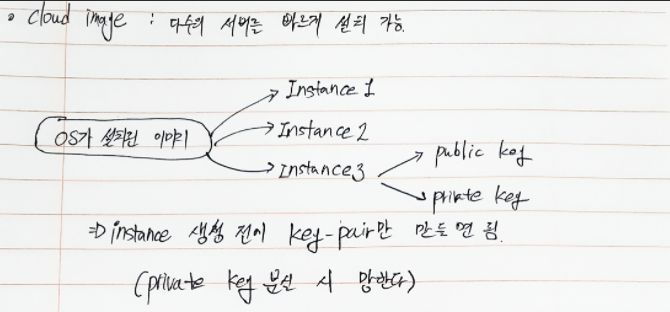 • cloud image : 다수의 서버를 빠르게 설치 가능.
OS가 설치된 이미지
Instance 1
Instance 2
Instance 3
public key
private key
⇒ instance 생성 전에 key-pair만 만들면 됨.
(private key 분실 시 망한다)